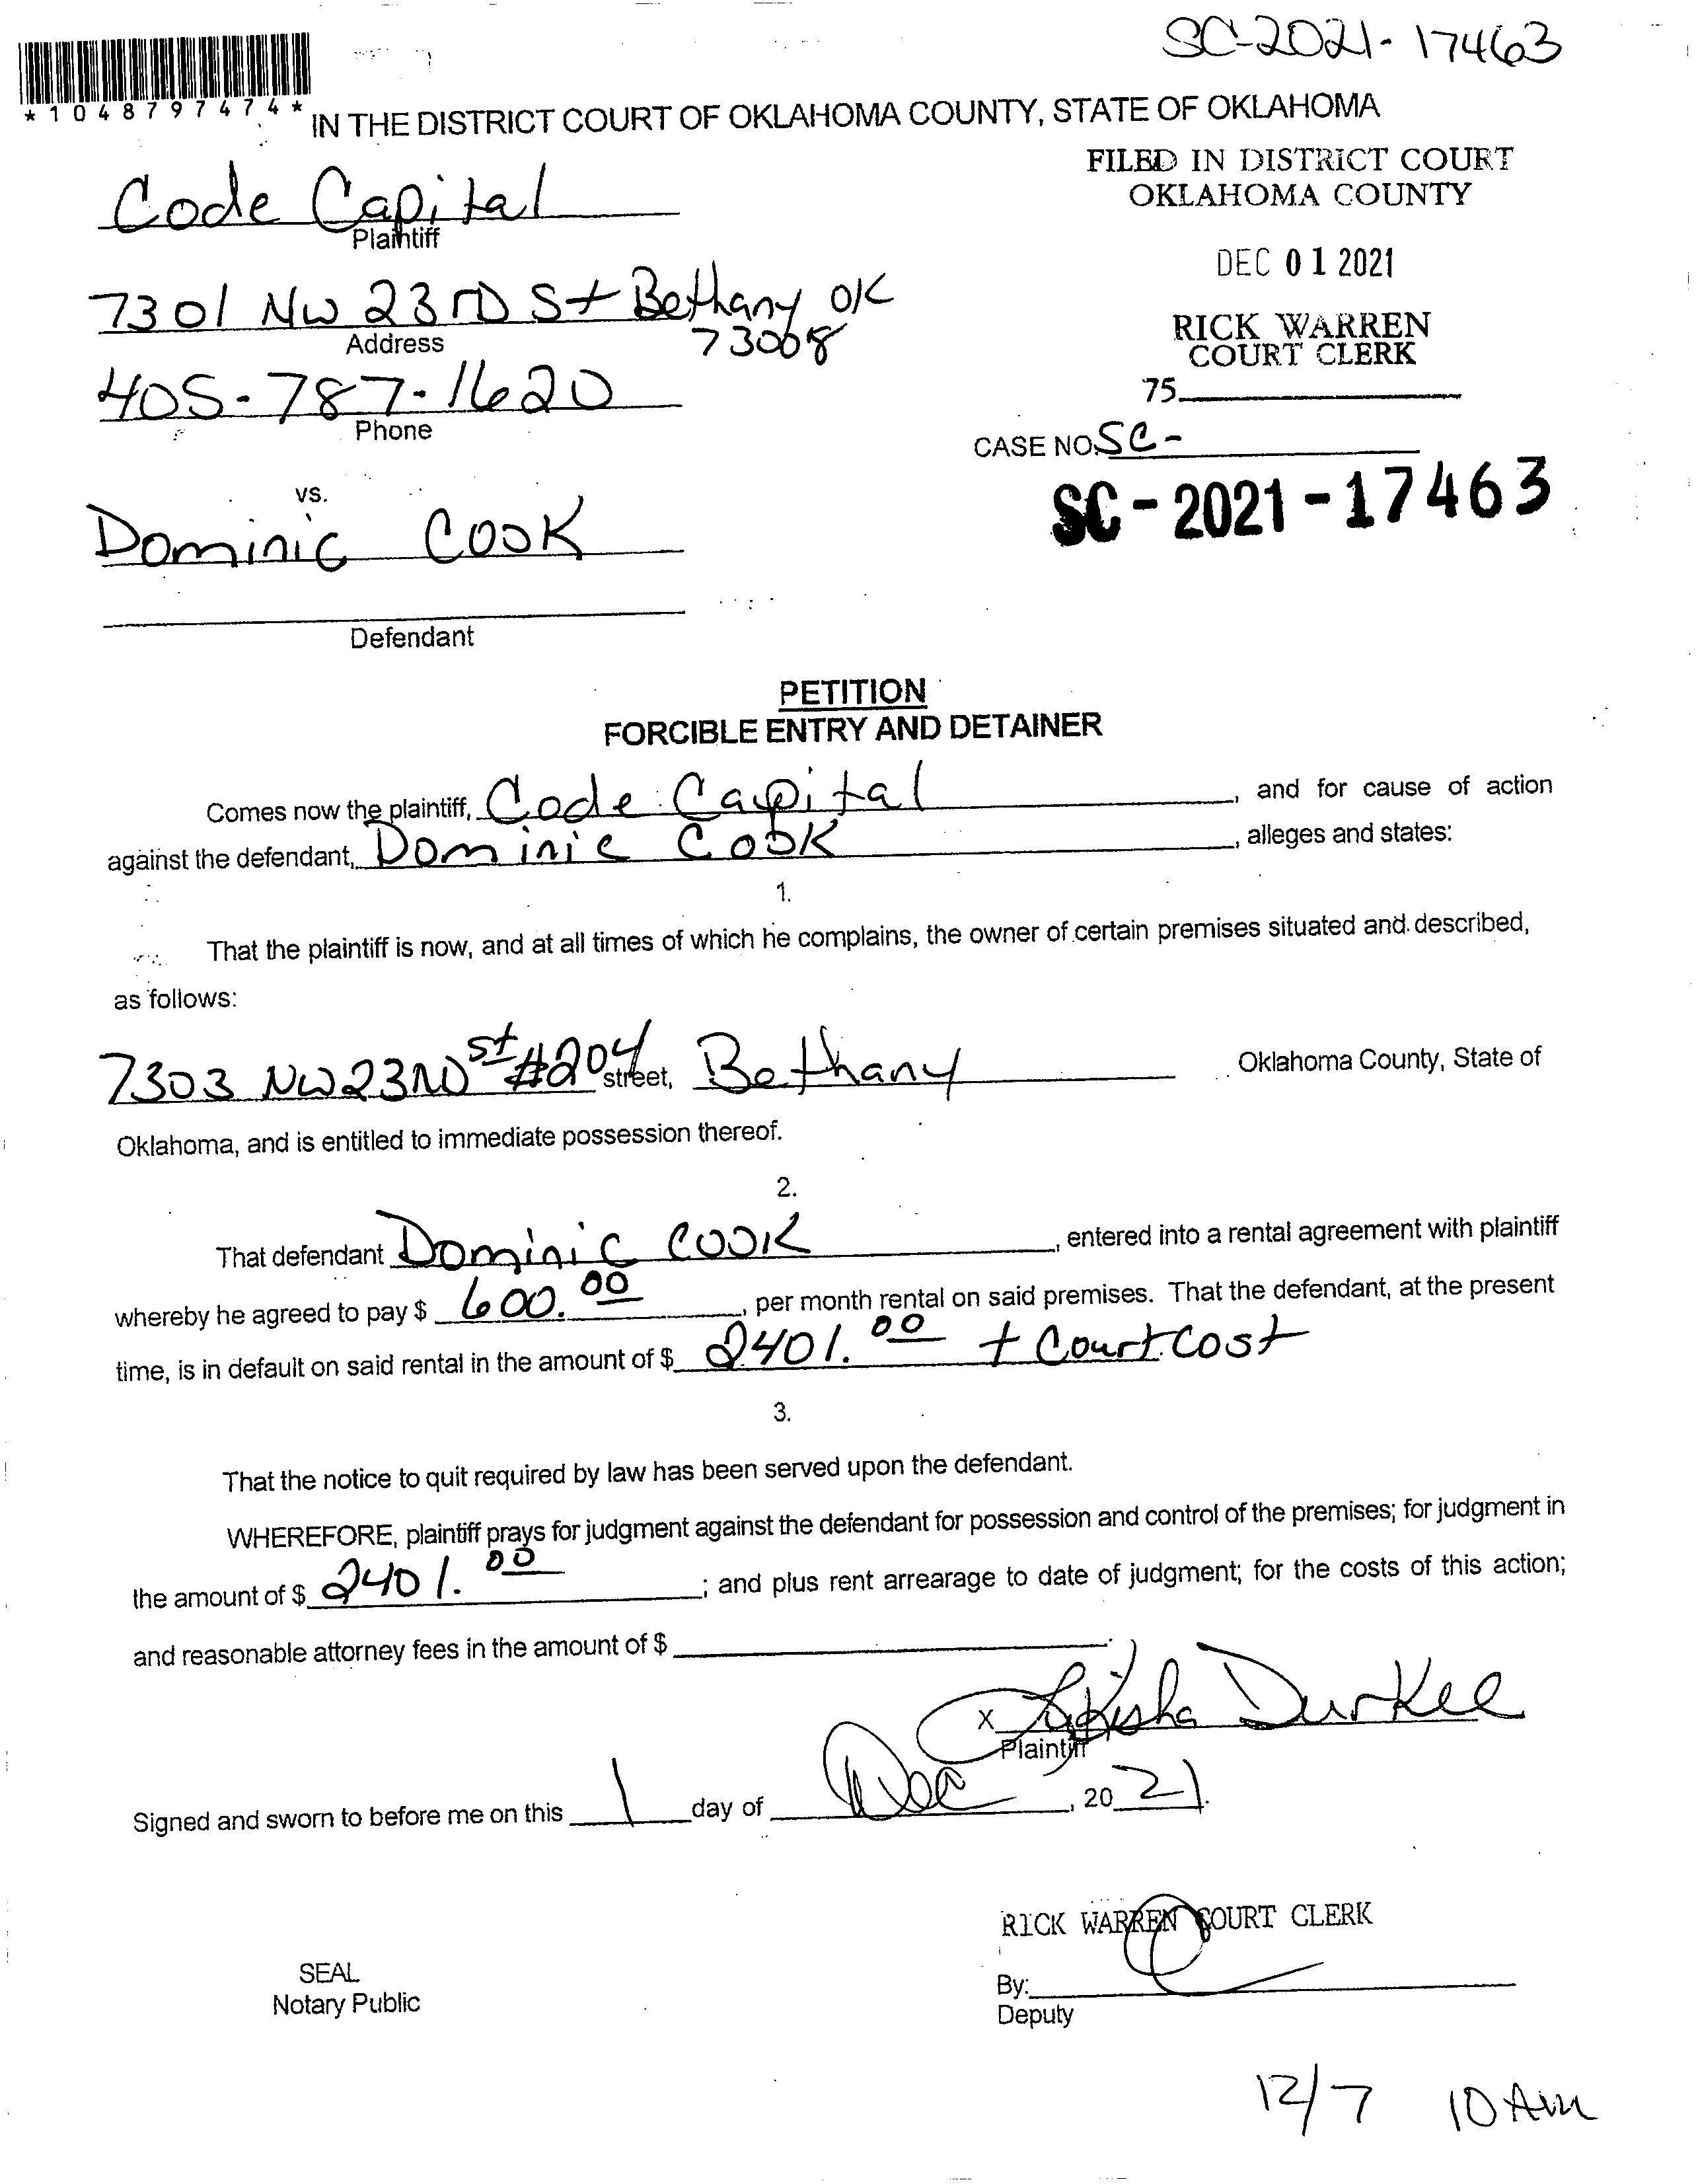 SC-2021-17463
*1048797474*
IN THE DISTRICT COURT OF OKLAHOMA COUNTY, STATE OF OKLAHOMA
FILED IN DISTRICT COURT
OKLAHOMA COUNTY
Code Capital
Plaintiff
DEC 01 2021
7301 NW 23RD St Bethany OK
73008
Address
RICK WARREN
COURT CLERK
405-787-1620
Phone
75
CASE NO. SC-
SC-2021-17463
vs.
Dominic Cook
Defendant
PETITION
FORCIBLE ENTRY AND DETAINER
Comes now the plaintiff, Code Capital, and for cause of action
against the defendant, Dominic Cook, alleges and states:
1.
That the plaintiff is now, and at all times of which he complains, the owner of certain premises situated and described,
as follows:
7303 NW 23RD St #204 street, Bethany Oklahoma County, State of
Oklahoma, and is entitled to immediate possession thereof.
2.
That defendant Dominic Cook, entered into a rental agreement with plaintiff
whereby he agreed to pay $ 600.00, per month rental on said premises. That the defendant, at the present
time, is in default on said rental in the amount of $ 2401.00 + Court Cost
3.
That the notice to quit required by law has been served upon the defendant.
WHEREFORE, plaintiff prays for judgment against the defendant for possession and control of the premises; for judgment in
the amount of $ 2401.00; and plus rent arrearage to date of judgment; for the costs of this action;
and reasonable attorney fees in the amount of $
X Durkee
Plaintiff
Signed and sworn to before me on this 1 day of Dec, 2021.
RICK WARREN COURT CLERK
SEAL
Notary Public
By:
Deputy
12/7 10 AM